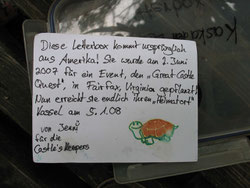 Diese Letterbox kommt ursprünglich
aus Amerika! Sie wurde am 2. Juni
2007 für ein Event, den „Great Castle
Quest", in Fairfax, Virginia gepflanzt!
Nun erreicht sie endlich ihren „Heimatort"
Kassel am 5.1.08
von Jenni
für die
Castle's Keepers